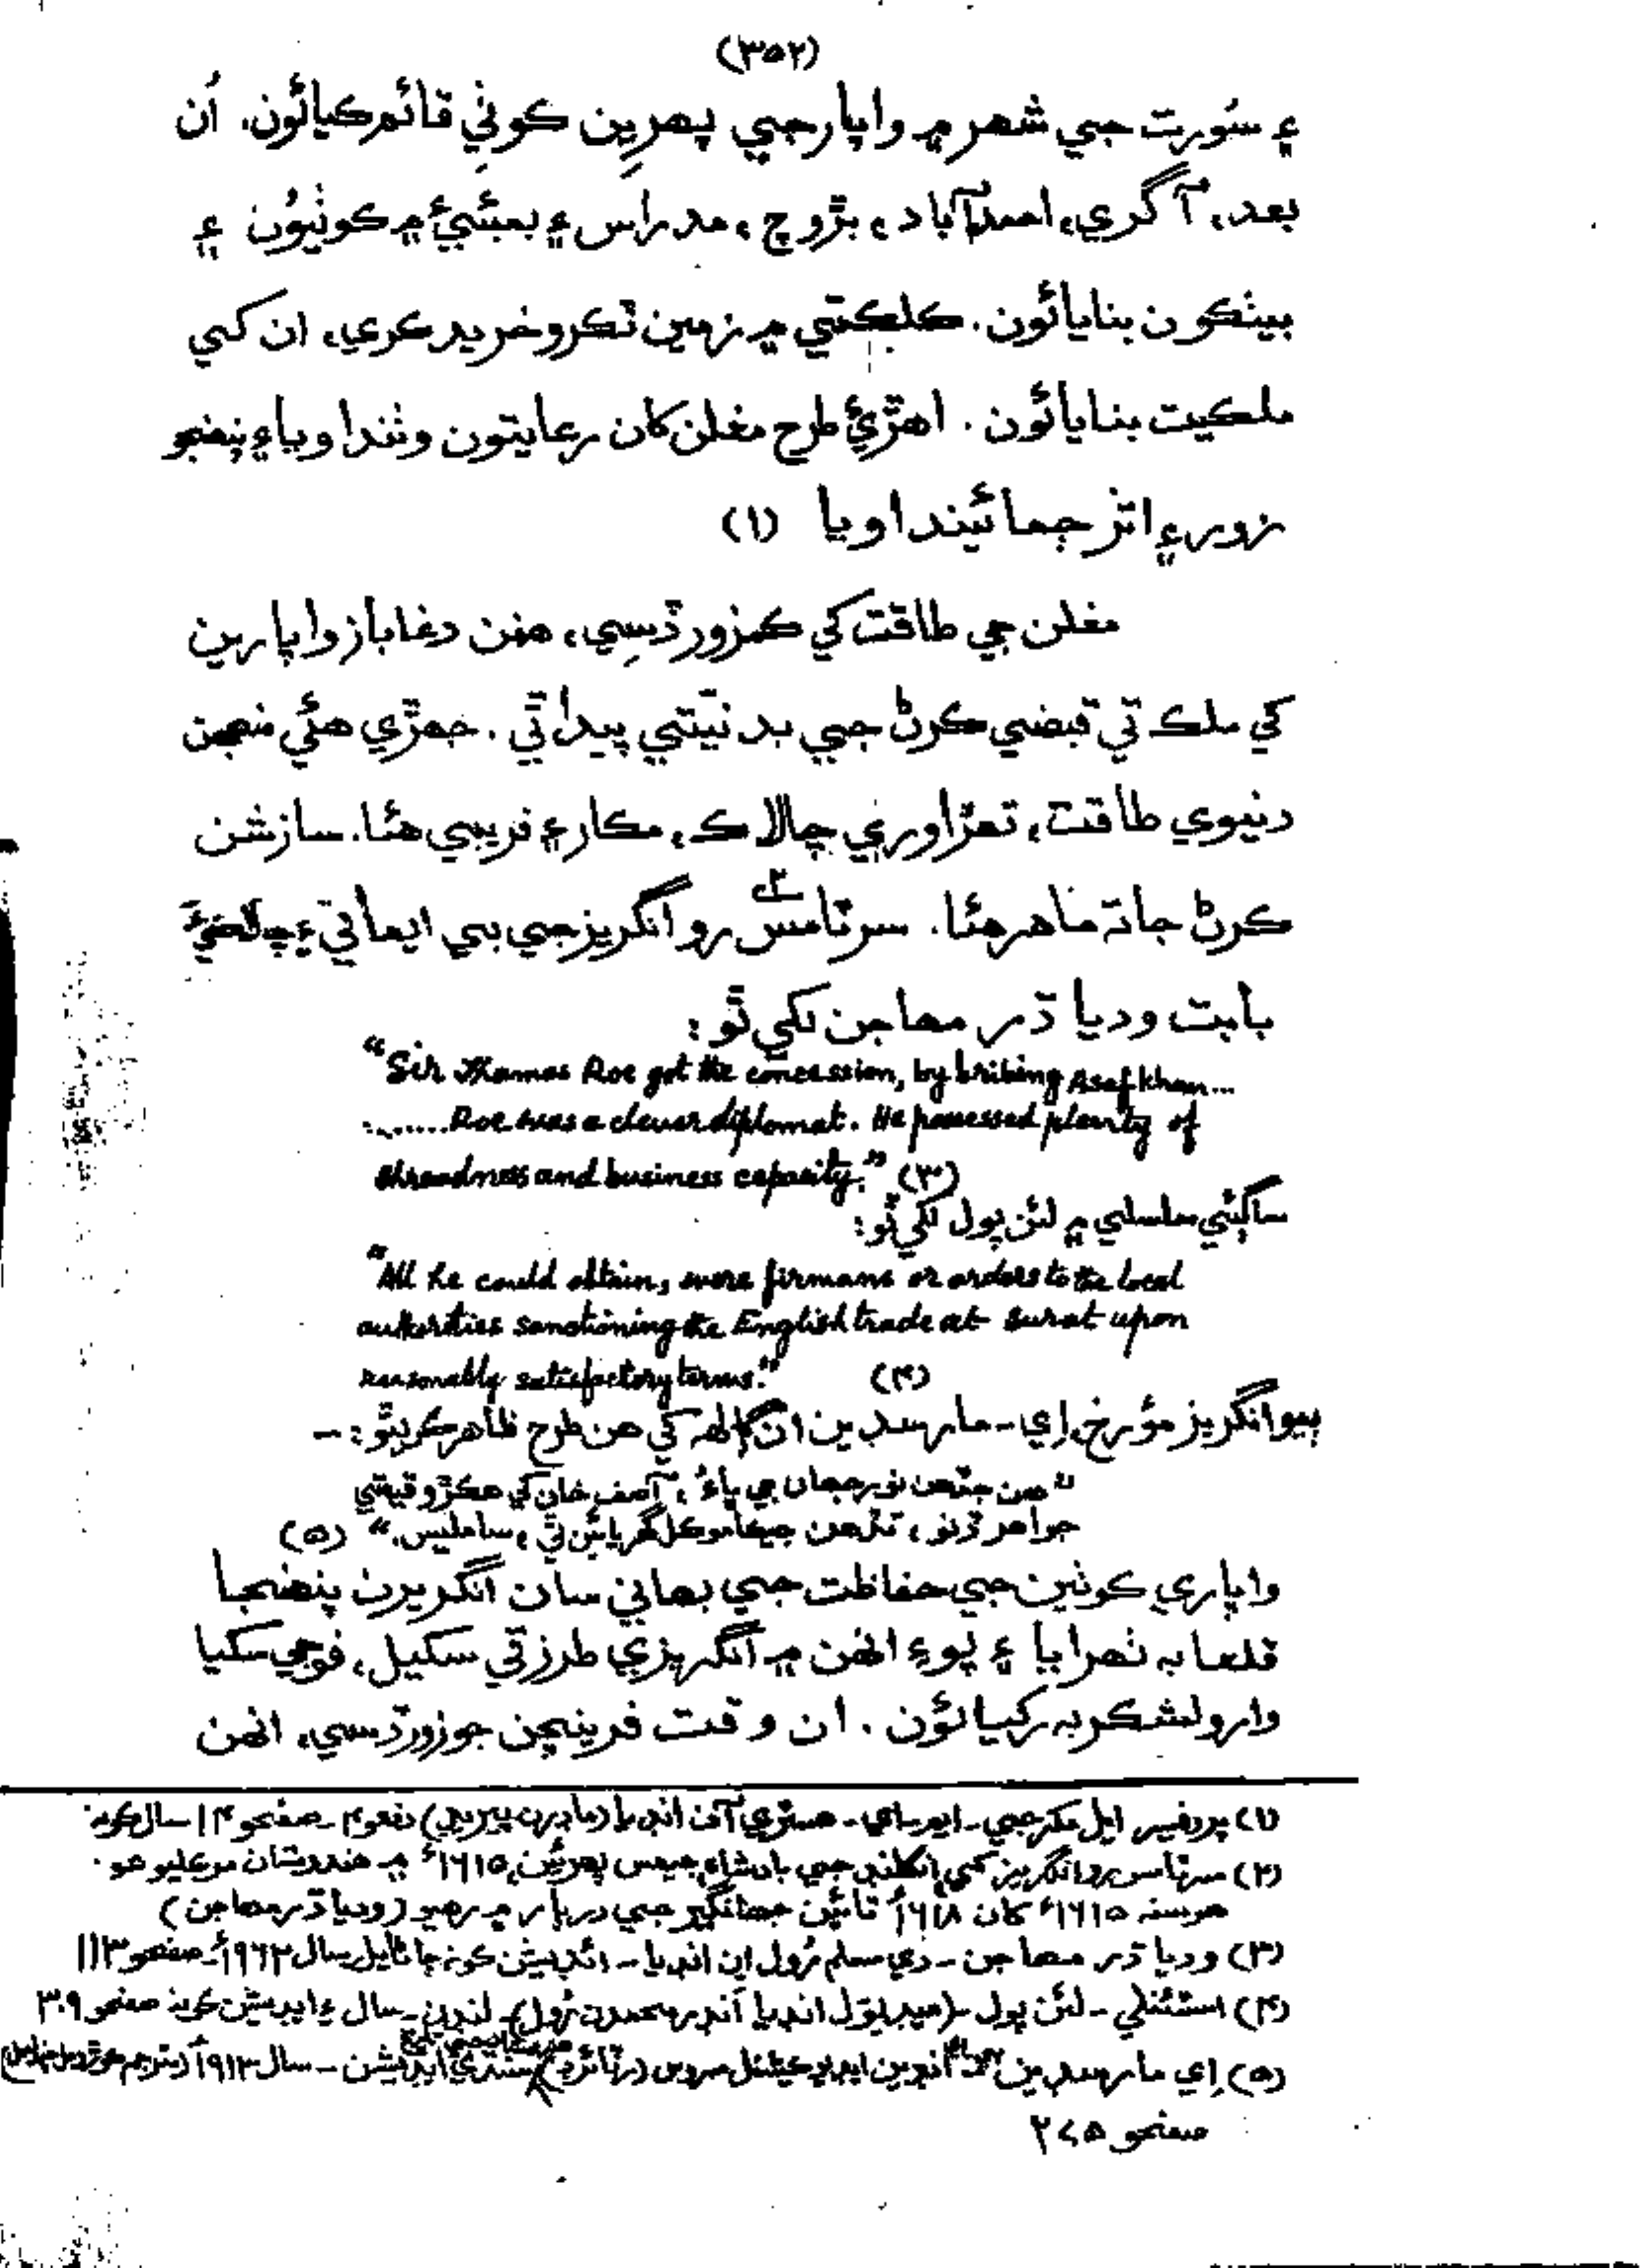 (۳۵۲)
۽ سُورت جي شهر ۾ واپار جي پهرين ڪوٺي قائم ڪيائون. اُن
بعد، آگري، احمدآباد، بڙوچ، مدراس ۽ بمبئيءَ ۾ ڪوٺيون ۽
بيٺڪون بنايائون. ڪلڪتي ۾ زمين ٽڪرو خريد ڪري، ان کي
ملڪيت بنايائون. اهڙيءَ طرح مغلن کان رعايتون وٺندا ويا ۽ پنهنجو
زور ۽ اثر ڄمائيندا ويا (۱)
مغلن جي طاقت کي ڪمزور ڏسِي، هنن دغاباز واپارين
کي ملڪ تي قبضي ڪرڻ جي بد نيتي پيدا ٿي. جهڙي هئي منجهن
دنيوي طاقت، تهڙا وري چالاڪ، مڪار ۽ فريبي هئا. سازشن
ڪرڻ جا ته ماهر هئا. سر ٿامس۲ رو انگريز جي بي ايماني ۽
بابت وديا ڌر مهاجن لکي ٿو:
“Sir Thomas Roe got the concession, by bribing Asaf khan...
........Roe was a clever diplomat. He possessed plenty of
shreadness and business capacity.” (۳)
ساڳئي سلسلي ۾ لئن پول لکي ٿو:
“All he could obtain, were firmans or orders to the local
authorities sanctioning the English trade at Surat upon
reasonably satisfactory terms.” (۴)
ٻيو انگريز مؤرخ اِي - مارسڊين ان ڳالهه کي هن طرح ظاهر ڪري ٿو: -
”هن جڏهن نورجهان جي ڀاءُ، آصف خان کي هڪڙو قيمتي
جواهر ڏنو، تڏهن جيڪا موڪل گهريائين ٿي، سا مليس.“ (۵)
واپاري ڪوٺين جي حفاظت جي بهاني سان انگريزن پنهنجا
قلعا به ٺهرايا ۽ پوءِ انهن ۾ انگريزي طرز تي سکيل، فوجي سکيا
وارو لشڪر به رکيائون. ان وقت فرينچن جو زور ڏسي، انهن
(۱) پروفيسر ايل مکرجي - ايم اي - هسٽري آف انڊيا (ماڊرن پيريڊ) دفعو ۾ صفحو ۱۴ سال ڪونه
(۲) سر ٿامس رو انگريز کي انگلنڊ جي بادشاهه جيمس پهرئين، ۱۶۱۵ع ۾ هندوستان موڪليو هو.
هو سنه ۱۶۱۵ع کان ۱۶۱۸ع تائين جهانگير جي دربار ۾ رهيو (وديا ڌر مهاجن)
(۳) وديا ڌر مهاجن - دي مسلم رُول اِن انڊيا - ائڊيشن ڪونه ڄاڻايل، سال ۱۹۶۲ع، صفحو ۱۱۳
(۴) اسٽئنلي - لئن پول - (ميڊيول انڊيا انڊر محمدن رُول) - لنڊن - سال ۽ ايڊيشن ڪونه صفحو ۳۰۹
(۵) اِي مارسڊين انڊين ايڊيوڪيشنل سروس (رٽائرڊ) سنڌي ايڊيشن - سال ۱۹۱۳ع
صفحو ۲۷۵